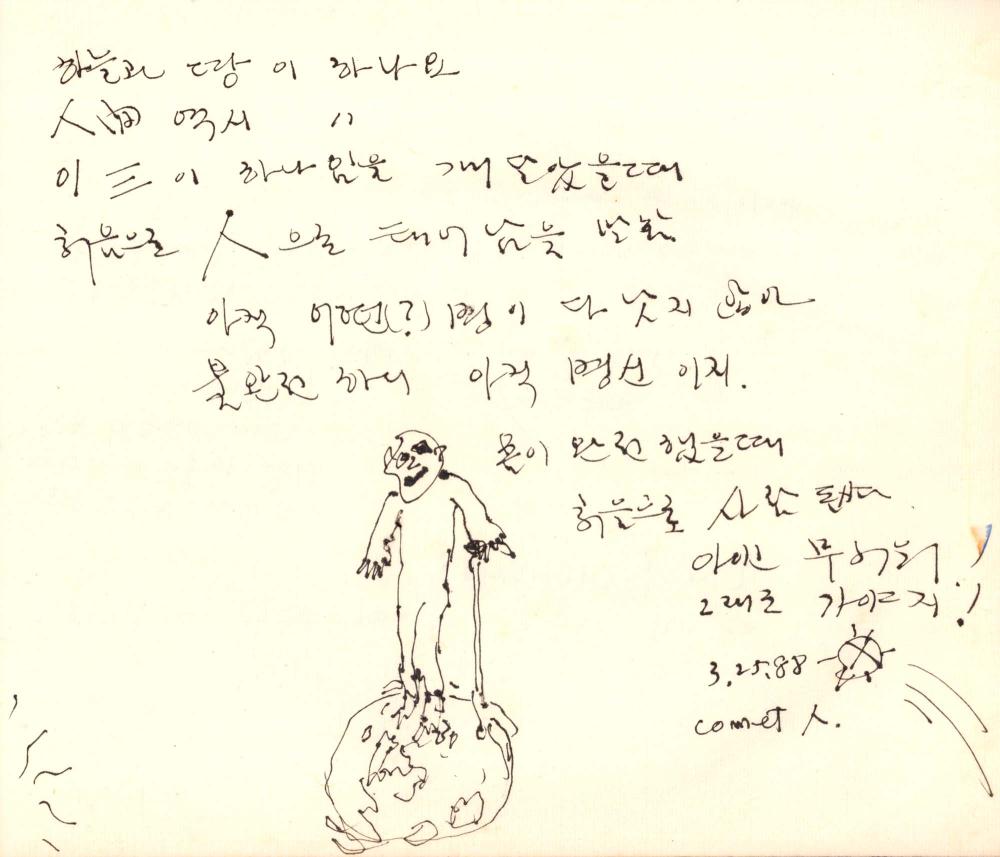 하늘과 땅이 하나요
人間 역시 〃
이 三이 하나임을 깨달았을때
처음으로 人으로 태어남을
아직 어떤(?) 병이 다 낫지 않아
불완전 하니 아직 병신 이지.
몸이 완전 했을때
처음으로 사람 됐다
아픈
그대로 가야지!
3.25.88
comet 人.